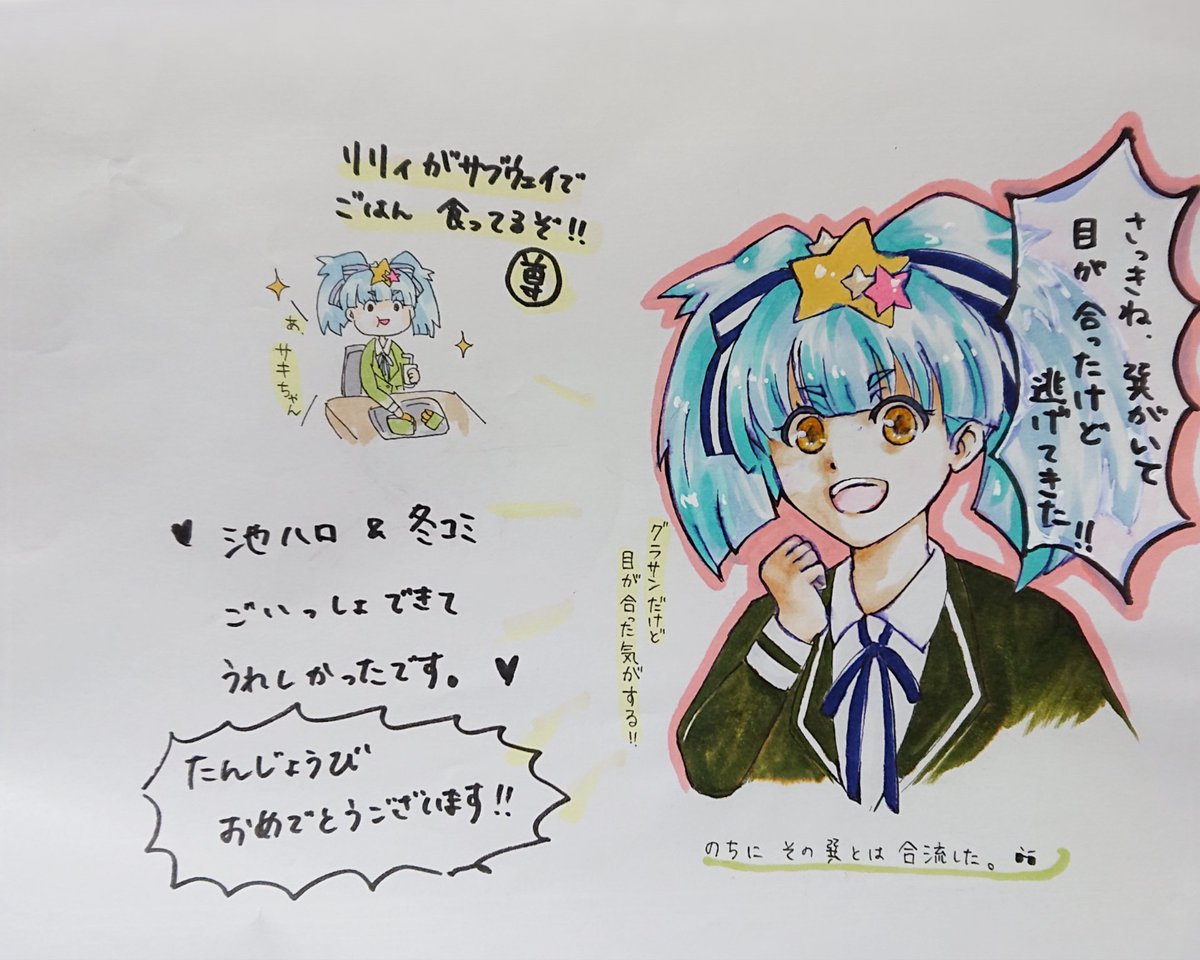 リリィがサブウェイで
ごはん 食ってるぞ!!
尊
あ、
サキちゃん
♥ 池ハロ & 冬コミ
ごいっしょできて
うれしかったです。♥
たんじょうび
おめでとうございます!!
さっきね、巽がいて
目が合ったけど
逃げてきた!!
グラサンだけど
目が合った気がする!!
のちに その巽とは 合流した。